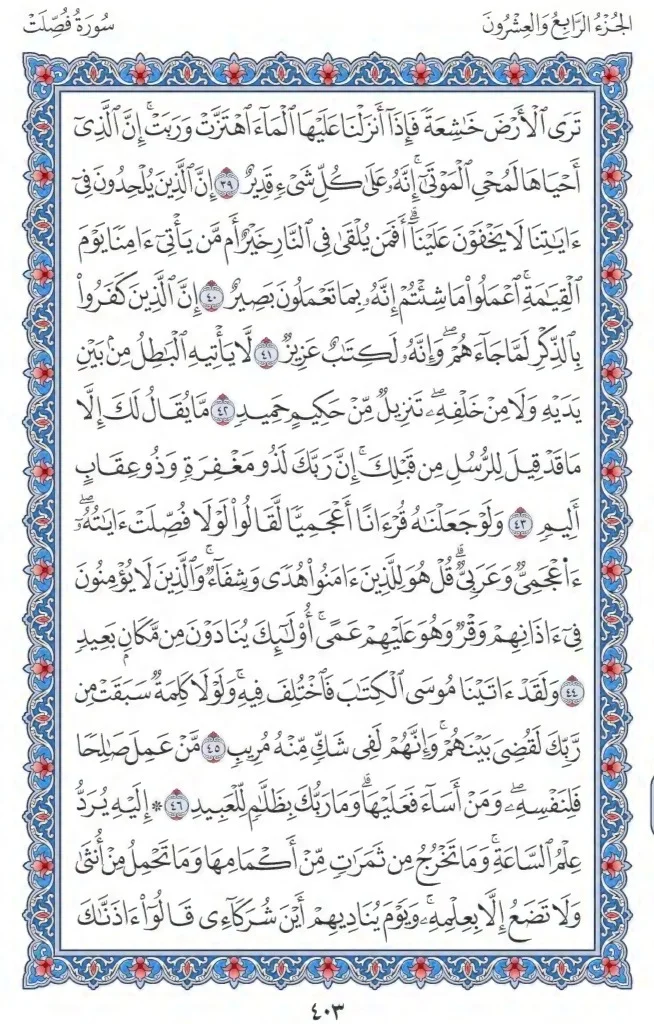 الجُزْءُ الرَّابِعُ وَالعِشْرُونَ سُورَةُ فُصِّلَتْ
تَرَى ٱلْأَرْضَ خَٰشِعَةً فَإِذَآ أَنزَلْنَا عَلَيْهَا ٱلْمَآءَ ٱهْتَزَّتْ وَرَبَتْ ۚ إِنَّ ٱلَّذِىٓ
أَحْيَاهَا لَمُحْىِ ٱلْمَوْتَىٰٓ ۚ إِنَّهُۥ عَلَىٰ كُلِّ شَىْءٍ قَدِيرٌ ٣٩ إِنَّ ٱلَّذِينَ يُلْحِدُونَ فِىٓ
ءَايَٰتِنَا لَا يَخْفَوْنَ عَلَيْنَآ ۗ أَفَمَن يُلْقَىٰ فِى ٱلنَّارِ خَيْرٌ أَم مَّن يَأْتِىٓ ءَامِنًا يَوْمَ
ٱلْقِيَٰمَةِ ۚ ٱعْمَلُوا۟ مَا شِئْتُمْ إِنَّهُۥ بِمَا تَعْمَلُونَ بَصِيرٌ ٤٠ إِنَّ ٱلَّذِينَ كَفَرُوا۟
بِٱلذِّكْرِ لَمَّا جَآءَهُمْ ۖ وَإِنَّهُۥ لَكِتَٰبٌ عَزِيزٌ ٤١ لَّا يَأْتِيهِ ٱلْبَٰطِلُ مِنۢ بَيْنِ
يَدَيْهِ وَلَا مِنْ خَلْفِهِۦ ۖ تَنزِيلٌ مِّنْ حَكِيمٍ حَمِيدٍ ٤٢ مَّا يُقَالُ لَكَ إِلَّا
مَا قَدْ قِيلَ لِلرُّسُلِ مِن قَبْلِكَ ۚ إِنَّ رَبَّكَ لَذُو مَغْفِرَةٍ وَذُو عِقَابٍ
أَلِيمٍ ٤٣ وَلَوْ جَعَلْنَٰهُ قُرْءَانًا أَعْجَمِيًّا لَّقَالُوا۟ لَوْلَا فُصِّلَتْ ءَايَٰتُهُۥٓ ۖ
ءَا۬عْجَمِىٌّ وَعَرَبِىٌّ ۗ قُلْ هُوَ لِلَّذِينَ ءَامَنُوا۟ هُدًى وَشِفَآءٌ ۖ وَٱلَّذِينَ لَا يُؤْمِنُونَ
فِىٓ ءَاذَانِهِمْ وَقْرٌ وَهُوَ عَلَيْهِمْ عَمًى ۚ أُو۟لَٰٓئِكَ يُنَادَوْنَ مِن مَّكَانٍۭ بَعِيدٍ
٤٤ وَلَقَدْ ءَاتَيْنَا مُوسَى ٱلْكِتَٰبَ فَٱخْتُلِفَ فِيهِ ۗ وَلَوْلَا كَلِمَةٌ سَبَقَتْ مِن
رَّبِّكَ لَقُضِىَ بَيْنَهُمْ ۚ وَإِنَّهُمْ لَفِى شَكٍّ مِّنْهُ مُرِيبٍ ٤٥ مَّنْ عَمِلَ صَٰلِحًا
فَلِنَفْسِهِۦ ۖ وَمَنْ أَسَآءَ فَعَلَيْهَا ۗ وَمَا رَبُّكَ بِظَلَّٰمٍ لِّلْعَبِيدِ ٤٦ * إِلَيْهِ يُرَدُّ
عِلْمُ ٱلسَّاعَةِ ۚ وَمَا تَخْرُجُ مِن ثَمَرَٰتٍ مِّنْ أَكْمَامِهَا وَمَا تَحْمِلُ مِنْ أُنثَىٰ
وَلَا تَضَعُ إِلَّا بِعِلْمِهِۦ ۚ وَيَوْمَ يُنَادِيهِمْ أَيْنَ شُرَكَآءِى قَالُوٓا۟ ءَاذَنَّٰكَ
٤٠٣